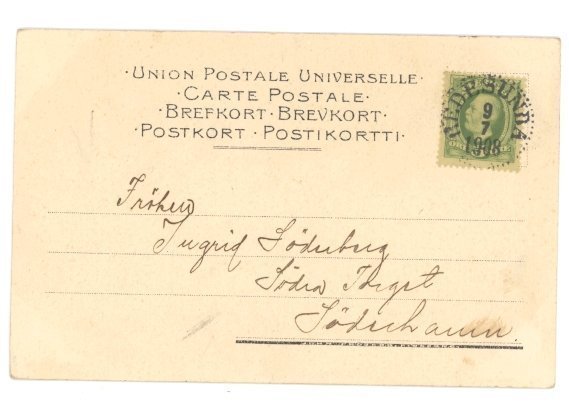 ·UNION POSTALE UNIVERSELLE·
·CARTE POSTALE·
·BREFKORT·BREVKORT·
·POSTKORT·POSTIKORTTI·
HEDESUNDA
9
7
1908
Fröken
Ingrid Söderberg
Södra Torget
Söderhamn.